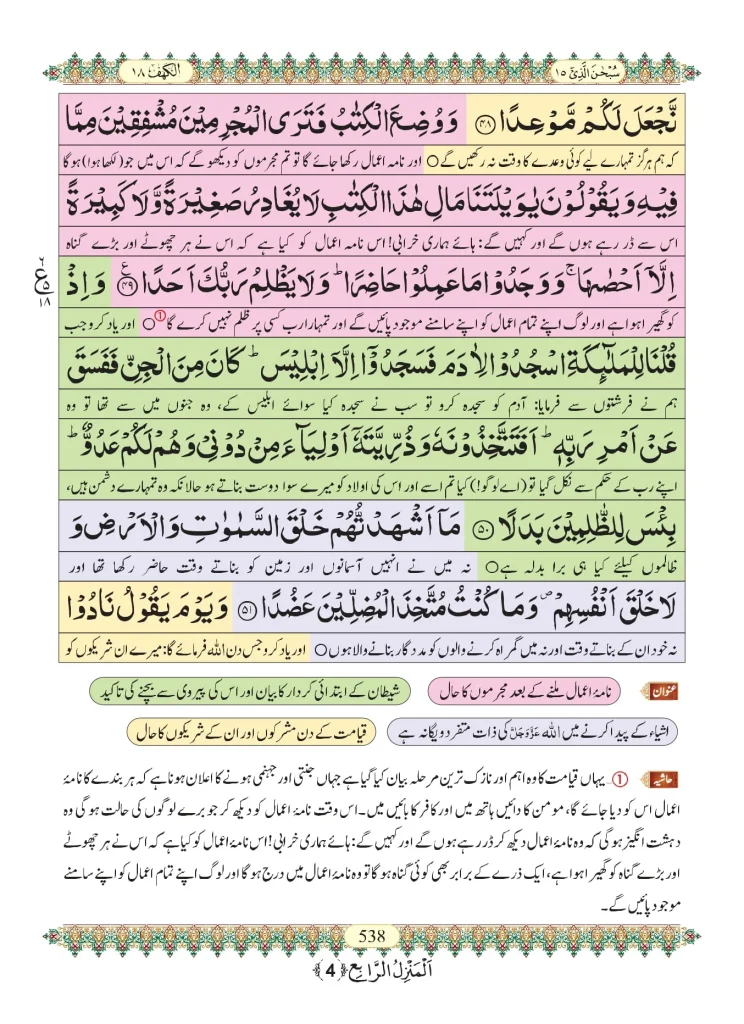 سُبْحٰنَ الَّذِیْۤ ۱۵
الکھف ۱۸
نَّجْعَلَ لَكُمْ مَّوْعِدًا ﴿۴۸﴾ وَ وُضِعَ الْكِتٰبُ فَتَرَى الْمُجْرِمِیْنَ مُشْفِقِیْنَ مِمَّا
کہ ہم ہرگز تمہارے لیے کوئی وعدے کا وقت نہ رکھیں گے ○ اور نامہ اعمال رکھا جائے گا تو تم مجرموں کو دیکھو گے کہ اس میں جو (لکھا ہوا) ہوگا
فِیْهِ وَ یَقُوْلُوْنَ یٰوَیْلَتَنَا مَالِ هٰذَا الْكِتٰبِ لَا یُغَادِرُ صَغِیْرَةً وَّ لَا كَبِیْرَةً
اس سے ڈر رہے ہوں گے اور کہیں گے: ہائے ہماری خرابی! اس نامہ اعمال کو کیا ہے کہ اس نے ہر چھوٹے اور بڑے گناہ
اِلَّاۤ اَحْصٰىهَاۚ وَ وَجَدُوْا مَا عَمِلُوْا حَاضِرًاؕ وَ لَا یَظْلِمُ رَبُّكَ اَحَدًا ﴿۴۹﴾ وَ اِذْ
ع
۵
۱۸
کو گھیرا ہوا ہے اور لوگ اپنے تمام اعمال کو اپنے سامنے موجود پائیں گے اور تمہارا رب کسی پر ظلم نہیں کرے گا ① ○ اور یاد کرو جب
قُلْنَا لِلْمَلٰٓىٕكَةِ اسْجُدُوْا لِاٰدَمَ فَسَجَدُوْۤا اِلَّاۤ اِبْلِیْسَؕ كَانَ مِنَ الْجِنِّ فَفَسَقَ
ہم نے فرشتوں سے فرمایا: آدم کو سجدہ کرو تو سب نے سجدہ کیا سوائے ابلیس کے، وہ جنوں میں سے تھا تو وہ
عَنْ اَمْرِ رَبِّهٖؕ اَفَتَتَّخِذُوْنَهٗ وَ ذُرِّیَّتَهٗۤ اَوْلِیَآءَ مِنْ دُوْنِیْ وَ هُمْ لَكُمْ عَدُوٌّؕ
اپنے رب کے حکم سے نکل گیا تو (اے لوگو!) کیا تم اسے اور اس کی اولاد کو میرے سوا دوست بناتے ہو حالانکہ وہ تمہارے دشمن ہیں،
بِئْسَ لِلظّٰلِمِیْنَ بَدَلًا ﴿۵۰﴾ مَاۤ اَشْهَدْتُّهُمْ خَلْقَ السَّمٰوٰتِ وَ الْاَرْضِ وَ
ظالموں کیلئے کیا ہی برا بدلہ ہے ○ نہ میں نے انہیں آسمانوں اور زمین کو بناتے وقت حاضر رکھا تھا اور
لَا خَلْقَ اَنْفُسِهِمْ۪ وَ مَا كُنْتُ مُتَّخِذَ الْمُضِلِّیْنَ عَضُدًا ﴿۵۱﴾ وَ یَوْمَ یَقُوْلُ نَادُوْا
نہ خود ان کے بناتے وقت اور نہ میں گمراہ کرنے والوں کو مددگار بنانے والا ہوں ○ اور یاد کرو جس دن اللہ فرمائے گا: میرے ان شریکوں کو
عنوان
نامۂ اعمال ملنے کے بعد مجرموں کا حال
شیطان کے ابتدائی کردار کا بیان اور اس کی پیروی سے بچنے کی تاکید
اشیاء کے پیدا کرنے میں اللہ عَزَّوَجَلَّ کی ذات متفرد و یگانہ ہے
قیامت کے دن مشرکوں اور ان کے شریکوں کا حال
حاشیہ
①... یہاں قیامت کا وہ اہم اور نازک ترین مرحلہ بیان کیا گیا ہے جہاں جنتی اور جہنمی ہونے کا اعلان ہونا ہے کہ ہر بندے کا نامۂ
اعمال اس کو دیا جائے گا، مومن کا دائیں ہاتھ میں اور کافر کا بائیں میں۔ اس وقت نامۂ اعمال کو دیکھ کر جو برے لوگوں کی حالت ہوگی وہ
دہشت انگیز ہوگی کہ وہ نامۂ اعمال دیکھ کر ڈر رہے ہوں گے اور کہیں گے: ہائے ہماری خرابی! اس نامۂ اعمال کو کیا ہے کہ اس نے ہر چھوٹے
اور بڑے گناہ کو گھیرا ہوا ہے، ایک ذرے کے برابر بھی کوئی گناہ ہوگا تو وہ نامۂ اعمال میں درج ہوگا اور لوگ اپنے تمام اعمال کو اپنے سامنے
موجود پائیں گے۔
538
اَلْمَنْزِلُ الرَّابِع ﴿4﴾